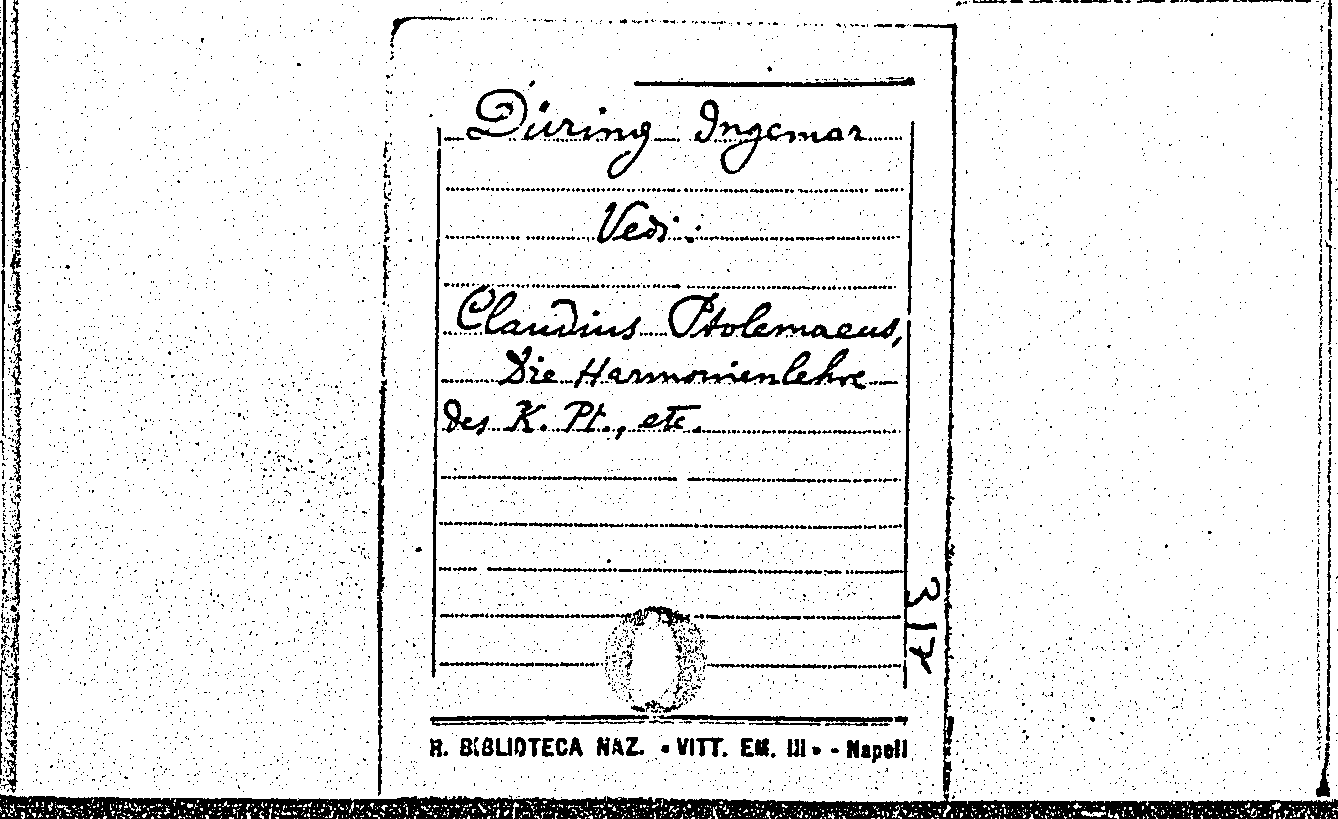 Düring Ingemar
Vedi:
Claudius Ptolemaeus,
Die Harmonienlehre
des K. Pt., etc.
3/7
R. BIBLIOTECA NAZ. «VITT. EM. III» - Napoli